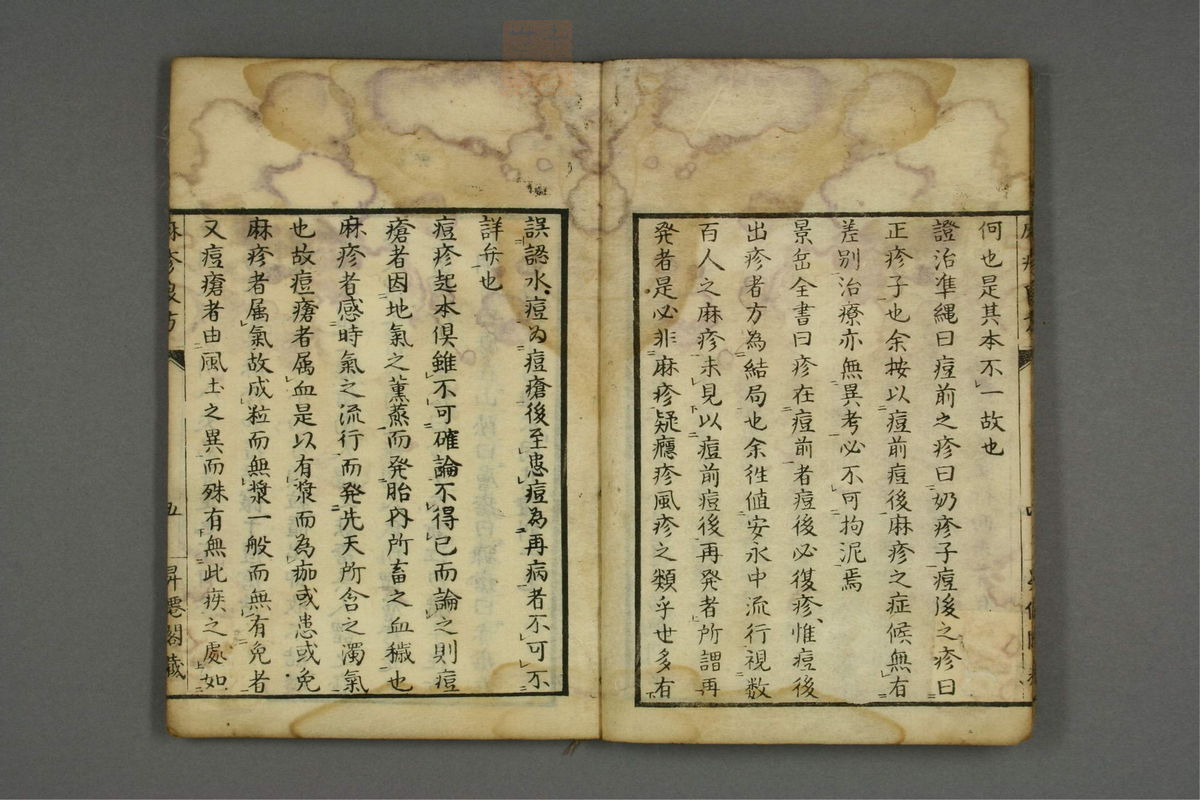 何也是其本不一故也
證治準縄曰痘前之疹曰奶疹子痘後之疹曰
正疹子也余按以痘前痘後麻疹之症候無有
差別治療亦無異考必不可拘泥焉
景岳全書曰疹在痘前者痘後必復疹惟痘後
出疹者方為結局也余徃値安永中流行視数
百人之麻疹未見以痘前痘後再発者所謂再
発者是必非麻疹疑癮疹風疹之類乎世多有
誤認水痘為痘瘡後至患痘為再病者不可不
詳弁也
痘疹起本倶雖不可確論不得已而論之則痘
瘡者因地氣之薫蒸而発胎内所畜之血穢也
麻疹者感時氣之流行而発先天所含之濁氣
也故痘瘡者属血是以有漿而為痂或患或免
麻疹者属氣故成粒而無漿一般而無有免者
又痘瘡者由風土之異而殊有無此疾之處如
麻疹良方
五
昇遷閣蔵